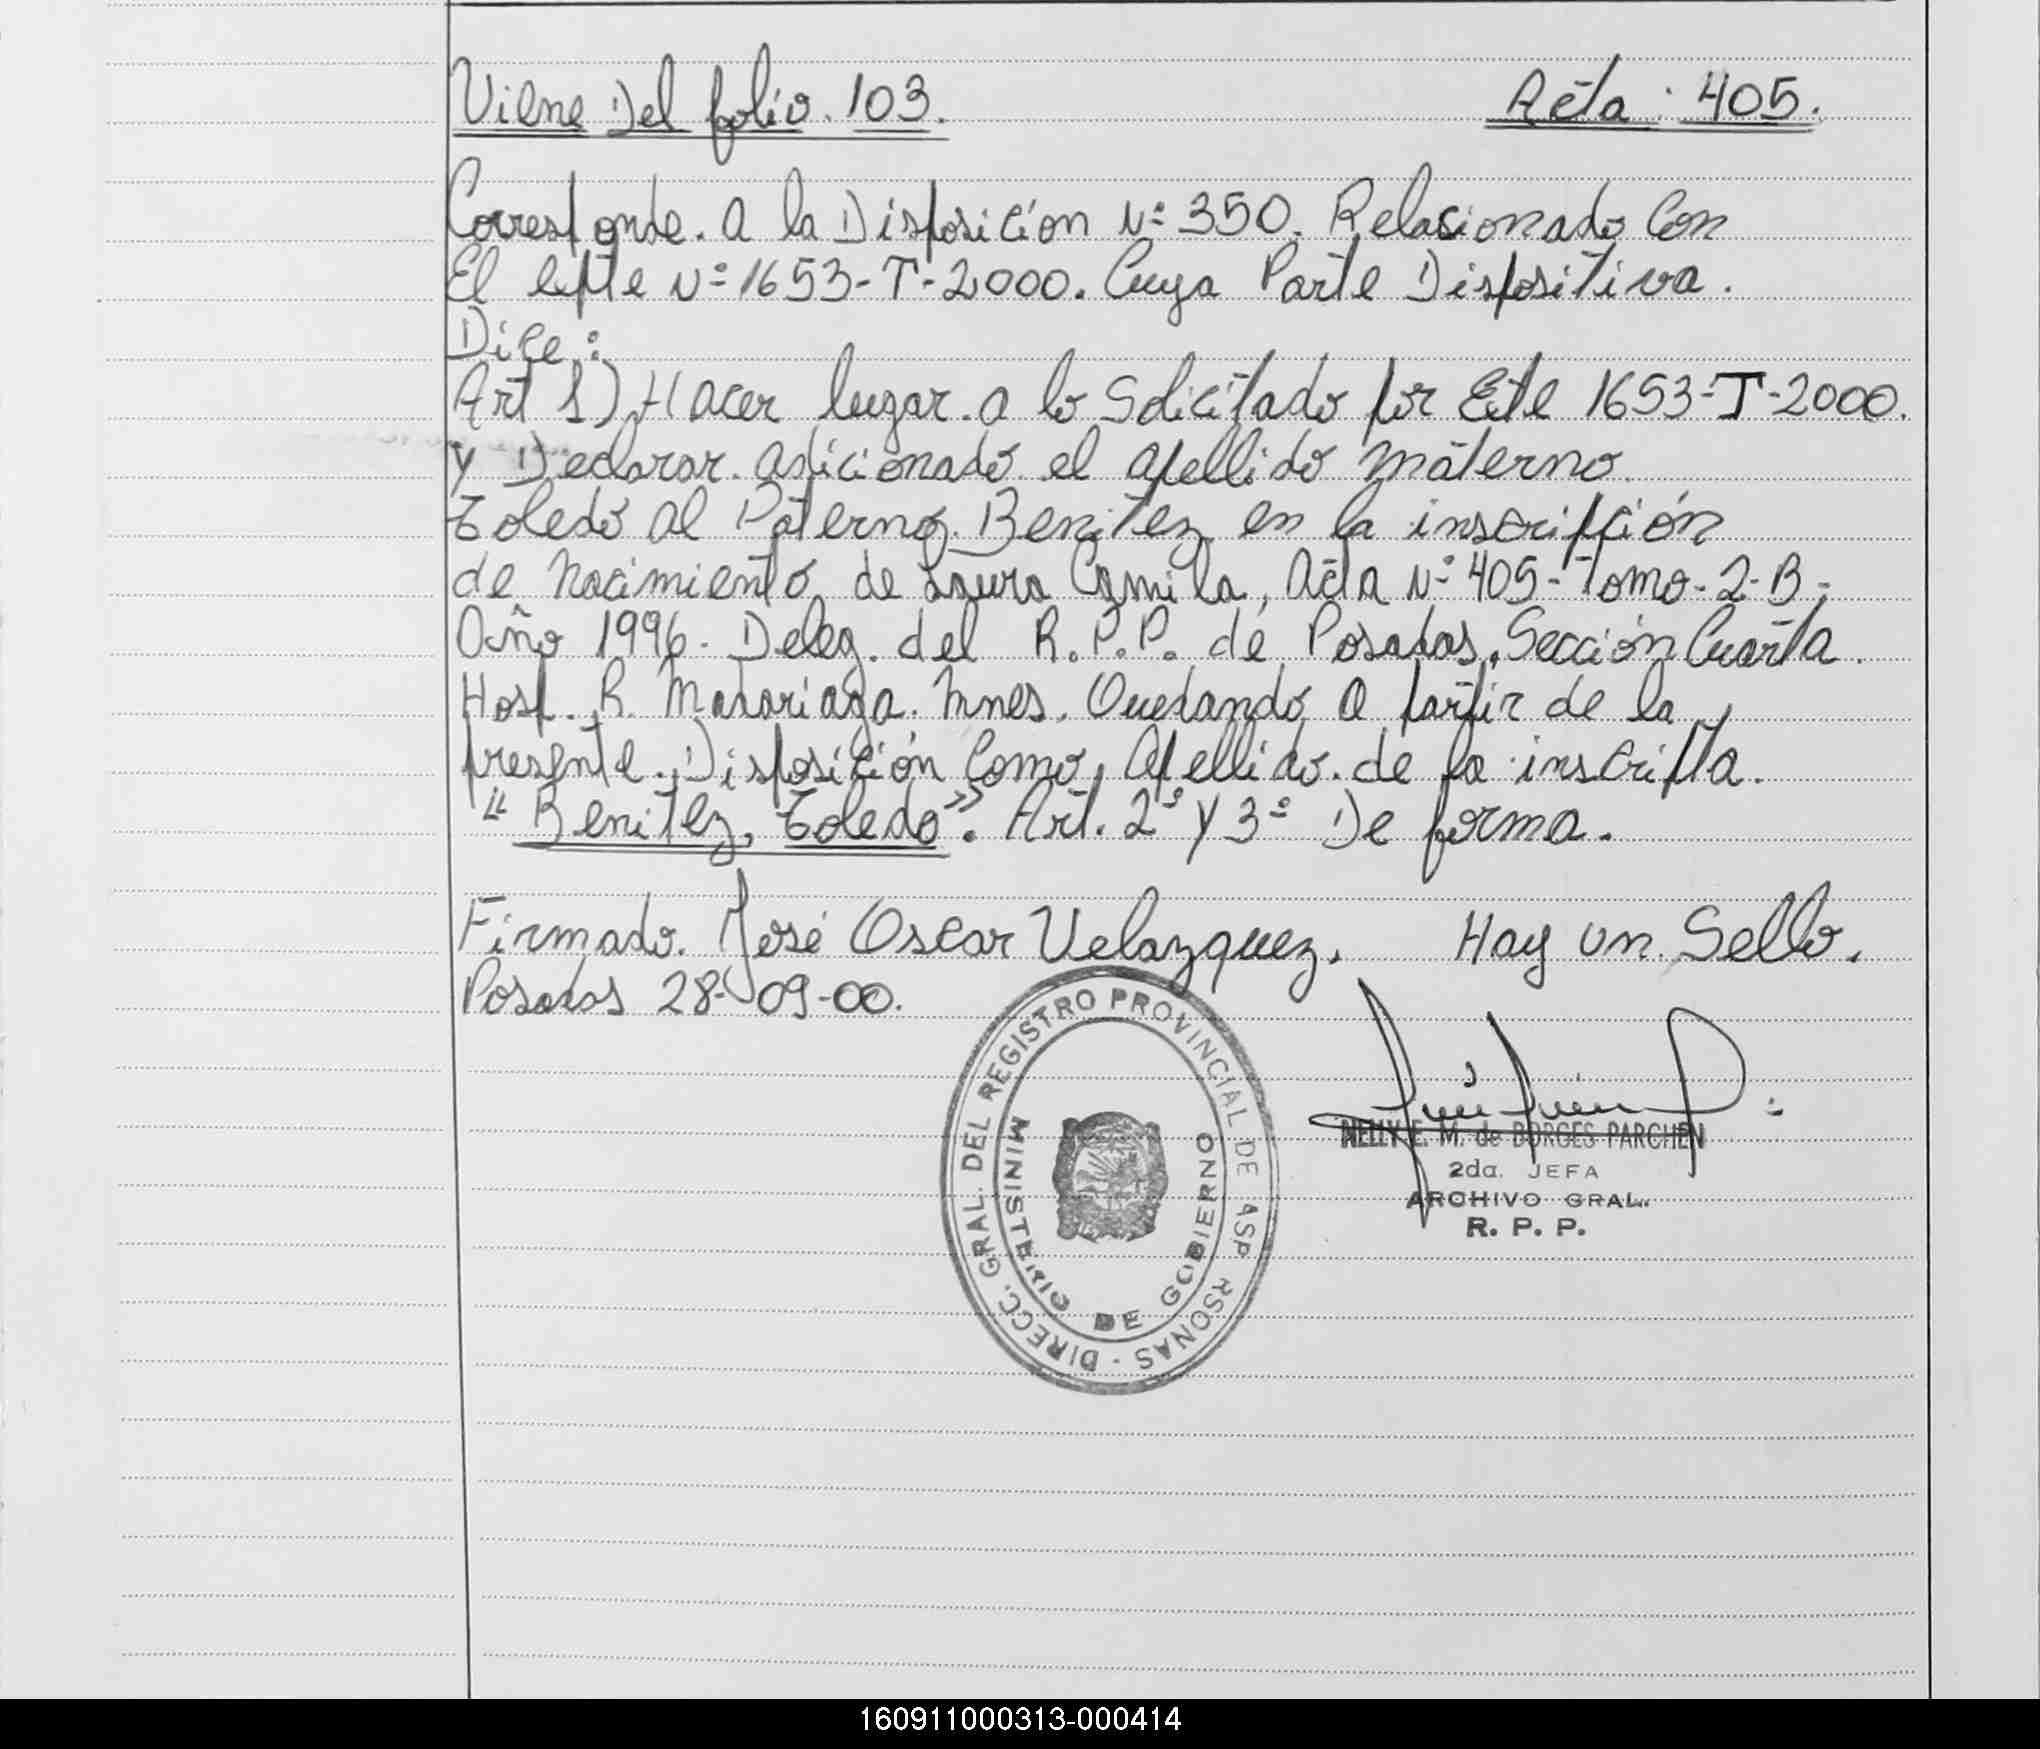 Viene Del folio. 103.
Acta: 405.
Corresponde. a la Disposición Nº 350. Relacionado Con
El expte Nº 1653-T-2000. Cuya Parte Dispositiva.
Dice:
Art 1) Hacer lugar. a lo Solicitado por Exte 1653-T-2000.
y Declarar. adicionado. el apellido materno.
Toledo al Paterno. Benitez en la inscripción
de Nacimiento de Laura Camila, Acta Nº 405-Tomo-2-B-
Año 1996. Deleg. del R.P.P. de Posadas. Sección Cuarta.
Hosp. R. Madariaga. Mnes. Quedando a partir de la
presente. Disposición Como, apellido. de la inscripta.
"Benitez, Toledo". Art. 2º y 3º De forma.
Firmado. José Oscar Velazquez. Hay un Sello.
Posadas 28-09-00.
DIRECC. GRAL. DEL REGISTRO PROVINCIAL DE ASP RSONAS -
MINISTERIO DE GOBIERNO
NELLY E. M. de BORGES PARCHEN
2da. JEFA
ARCHIVO GRAL.
R. P. P.
160911000313-000414